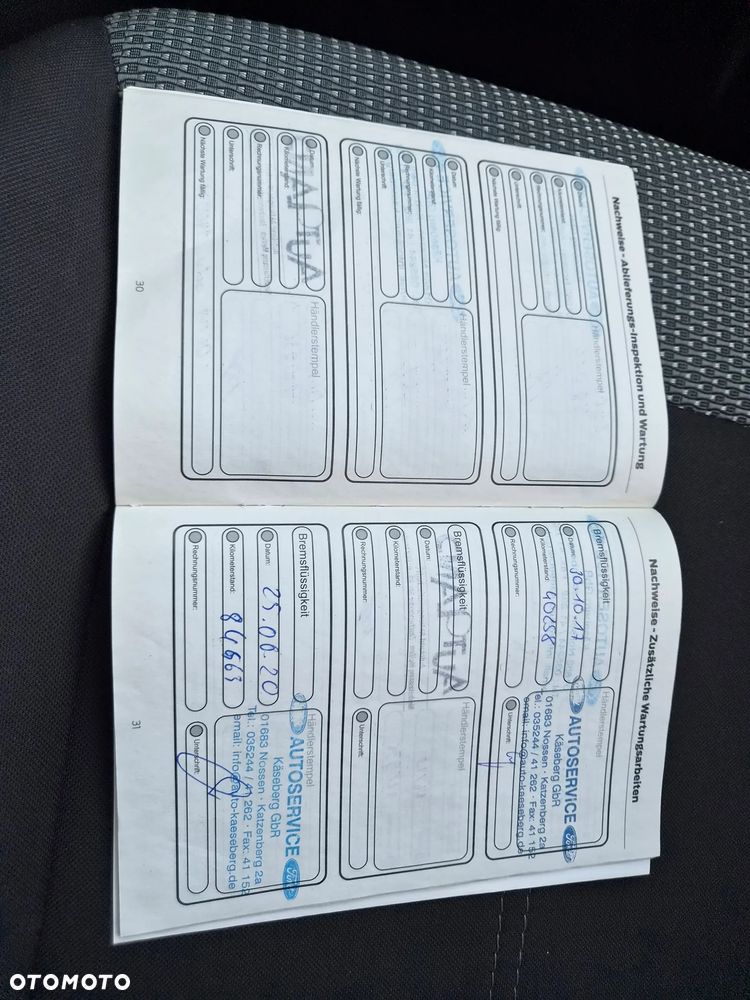 Nachweise - Ablieferungs-Inspektion und Wartung
Datum:
Kilometerstand:
Rechnungsnummer:
Unterschrift:
Nächste Wartung fällig:
Händlerstempel
Datum:
Kilometerstand:
Rechnungsnummer:
Unterschrift:
Nächste Wartung fällig:
Händlerstempel
Datum:
Kilometerstand:
Rechnungsnummer:
Unterschrift:
Nächste Wartung fällig:
Händlerstempel
30
Nachweise - Zusätzliche Wartungsarbeiten
Bremsflüssigkeit
Datum: 30.10.17
Kilometerstand: 40258
Rechnungsnummer:
Händlerstempel
AUTOSERVICE Ford
Käseberg GbR
01683 Nossen · Katzenberg 2a
Tel.: 035244 / 41 262 · Fax: 41 152
email: info@auto-kaeseberg.de
Unterschrift:
Bremsflüssigkeit
Datum:
Kilometerstand:
Rechnungsnummer:
Händlerstempel
Unterschrift:
Bremsflüssigkeit
Datum: 25.06.20
Kilometerstand: 84663
Rechnungsnummer:
Händlerstempel
AUTOSERVICE Ford
Käseberg GbR
01683 Nossen · Katzenberg 2a
Tel.: 035244 / 41 262 · Fax: 41 152
email: info@auto-kaeseberg.de
Unterschrift:
31
OTOMOTO